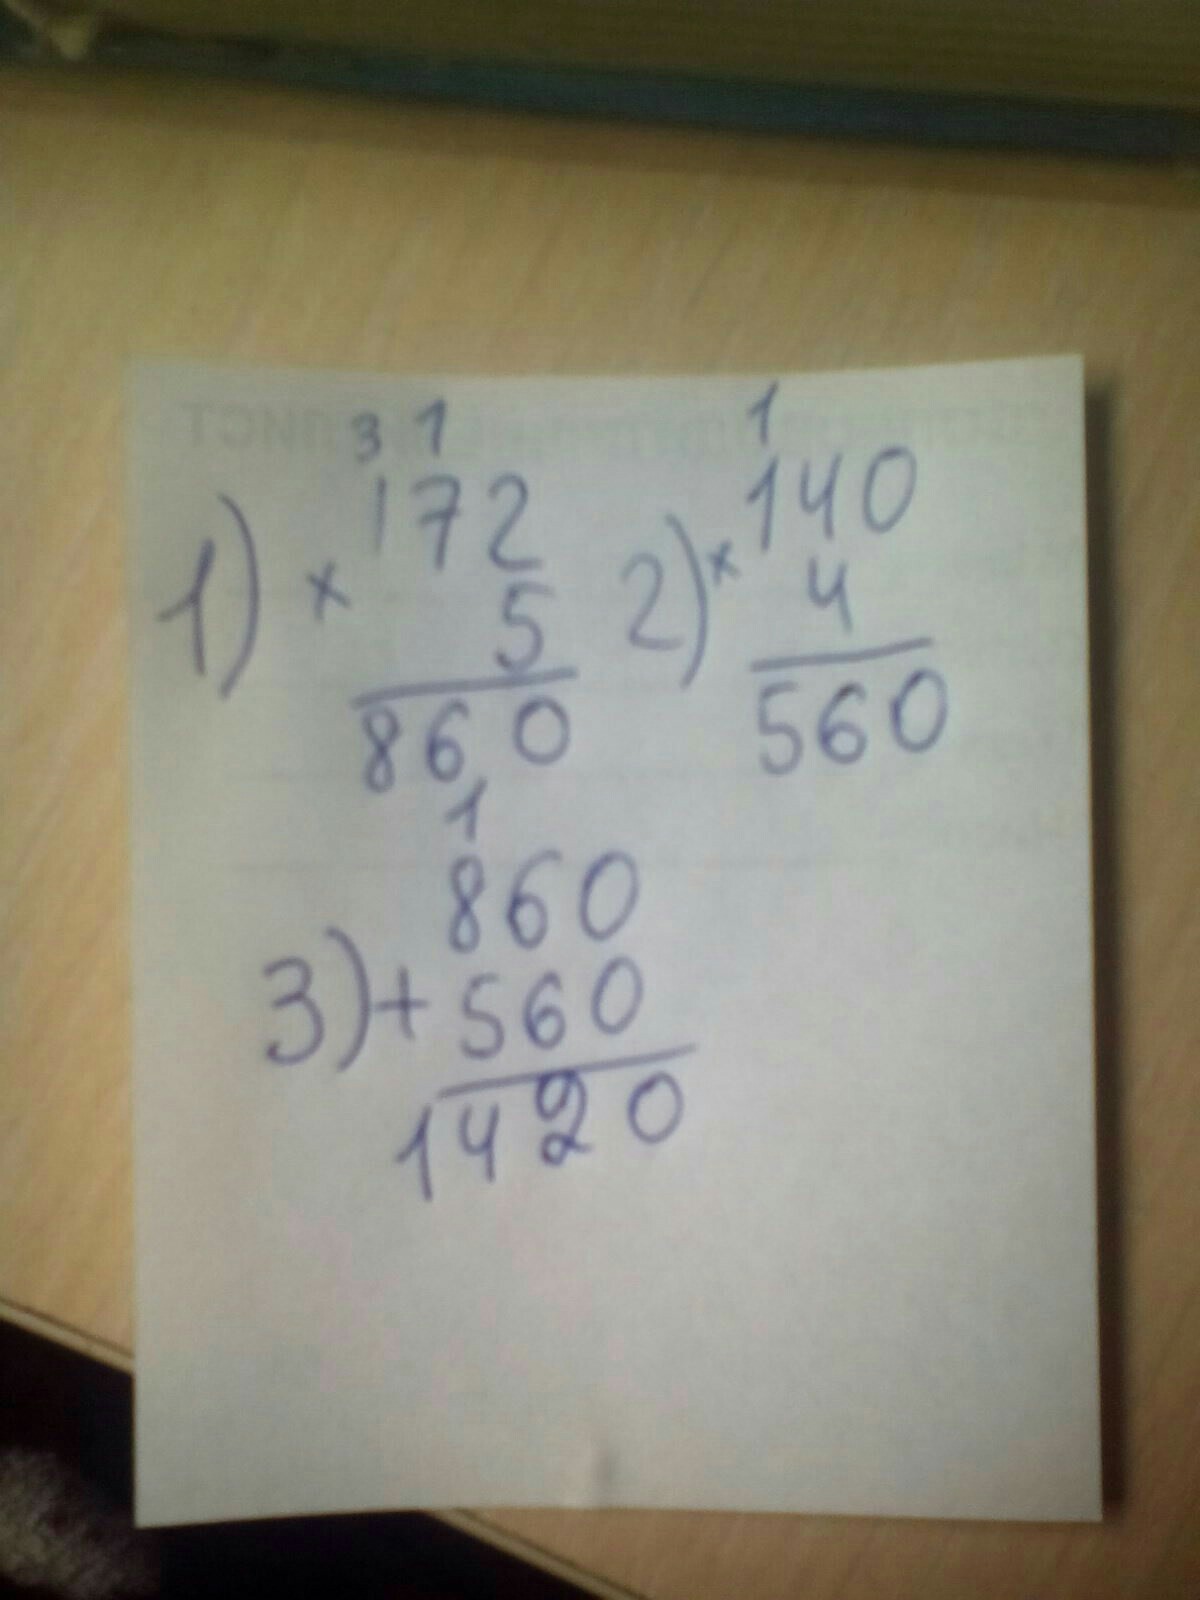 3 1
1
172
140
1) ×
2) ×
5
4
860
560
1
860
3) + 560
1420